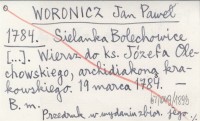 WORONICZ Jan Paweł
1784. Sielanka Bolechowice
[...]. Wiersz do ks. Józefa Ole-
chowskiego, archidiakona kra-
kowskiego. 19 marca 1784. —
B. m.
Przedruk w wydaniu zbior. jego